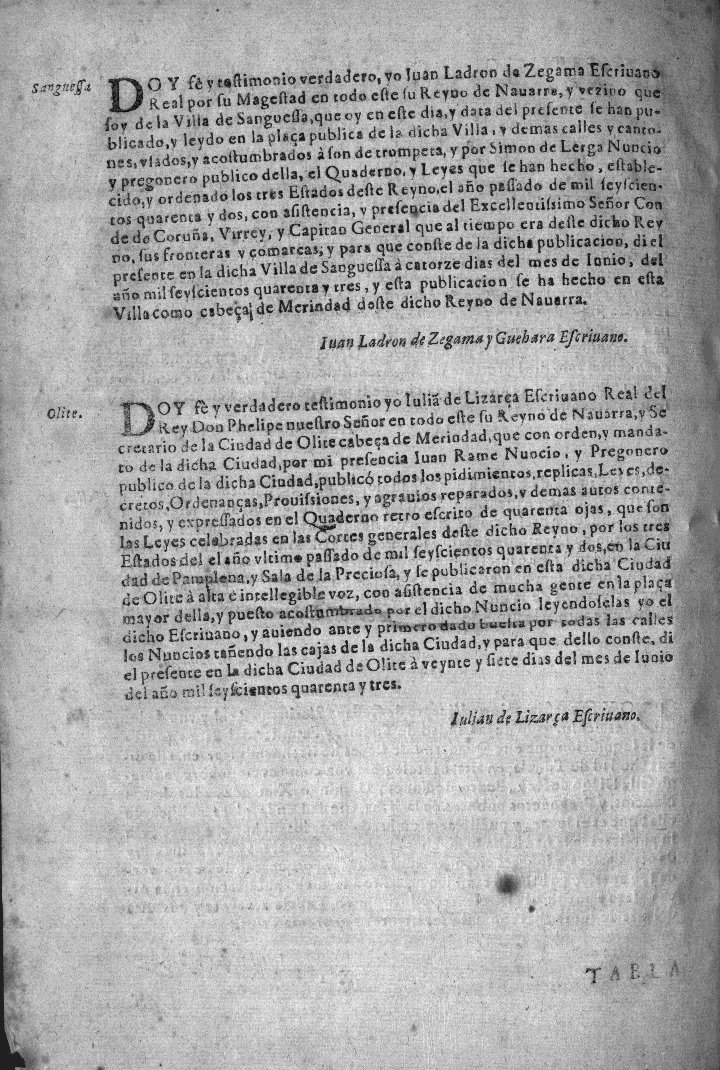 Sanguessa
DOY fè y testimonio verdadero, yo Iuan Ladron de Zegama Escriuano
Real por su Magestad en todo este su Reyno de Nauarra, y vezino que
soy de la Villa de Sanguessa, que oy en este dia, y data del presente se han pu-
blicado, y leydo en la plaça publica de la dicha Villa, y demas calles y canto-
nes, vsados, y acostumbrados à son de trompeta, y por Simon de Lerga Nuncio
y pregonero publico della, el Quaderno, y Leyes que se han hecho, estable-
cido, y ordenado los tres Estados deste Reyno, el año passado de mil seyscien-
tos quarenta y dos, con asistencia, y presencia del Excellentissimo Señor Con
de de Coruña, Virrey, y Capitan General que al tiempo era deste dicho Rey
no, sus fronteras y comarcas, y para que conste de la dicha publicacion, di el
presente en la dicha Villa de Sanguessa à catorze dias del mes de Iunio, del
año mil seyscientos quarenta y tres, y esta publicacion se ha hecho en esta
Villa como cabeça de Merindad deste dicho Reyno de Nauarra.
Iuan Ladron de Zegama y Guebara Escriuano.
Olite.
DOY fè y verdadero testimonio yo Iuliã de Lizarça Escriuano Real del
Rey Don Phelipe nuestro Señor en todo este su Reyno de Nauarra, y Se
cretario de la Ciudad de Olite cabeça de Merindad, que con orden, y manda-
to de la dicha Ciudad, por mi presencia Iuan Rame Nuncio, y Pregonero
publico de la dicha Ciudad, publicò todos los pidimientos, replicas, Leyes, de-
cretos, Ordenanças, Prouissiones, y agrauios reparados, y demas autos conte-
nidos, y expressados en el Quaderno retro escrito de quarenta ojas, que son
las Leyes celebradas en las Cortes generales deste dicho Reyno, por los tres
Estados del el año vltimo passado de mil seyscientos quarenta y dos, en la Ciu
dad de Pamplena, y Sala de la Preciosa, y se publicaron en esta dicha Ciudad
de Olite à alta è intellegible voz, con asistencia de mucha gente en la plaça
mayor della, y puesto acostumbrado por el dicho Nuncio leyendoselas yo el
dicho Escriuano, y auiendo ante y primero dado buelta por todas las calles
los Nuncios tañendo las cajas de la dicha Ciudad, y para que dello conste, di
el presente en la dicha Ciudad de Olite à veynte y siete dias del mes de Iunio
del año mil seyscientos quarenta y tres.
Iulian de Lizarça Escriuano.
TABLA